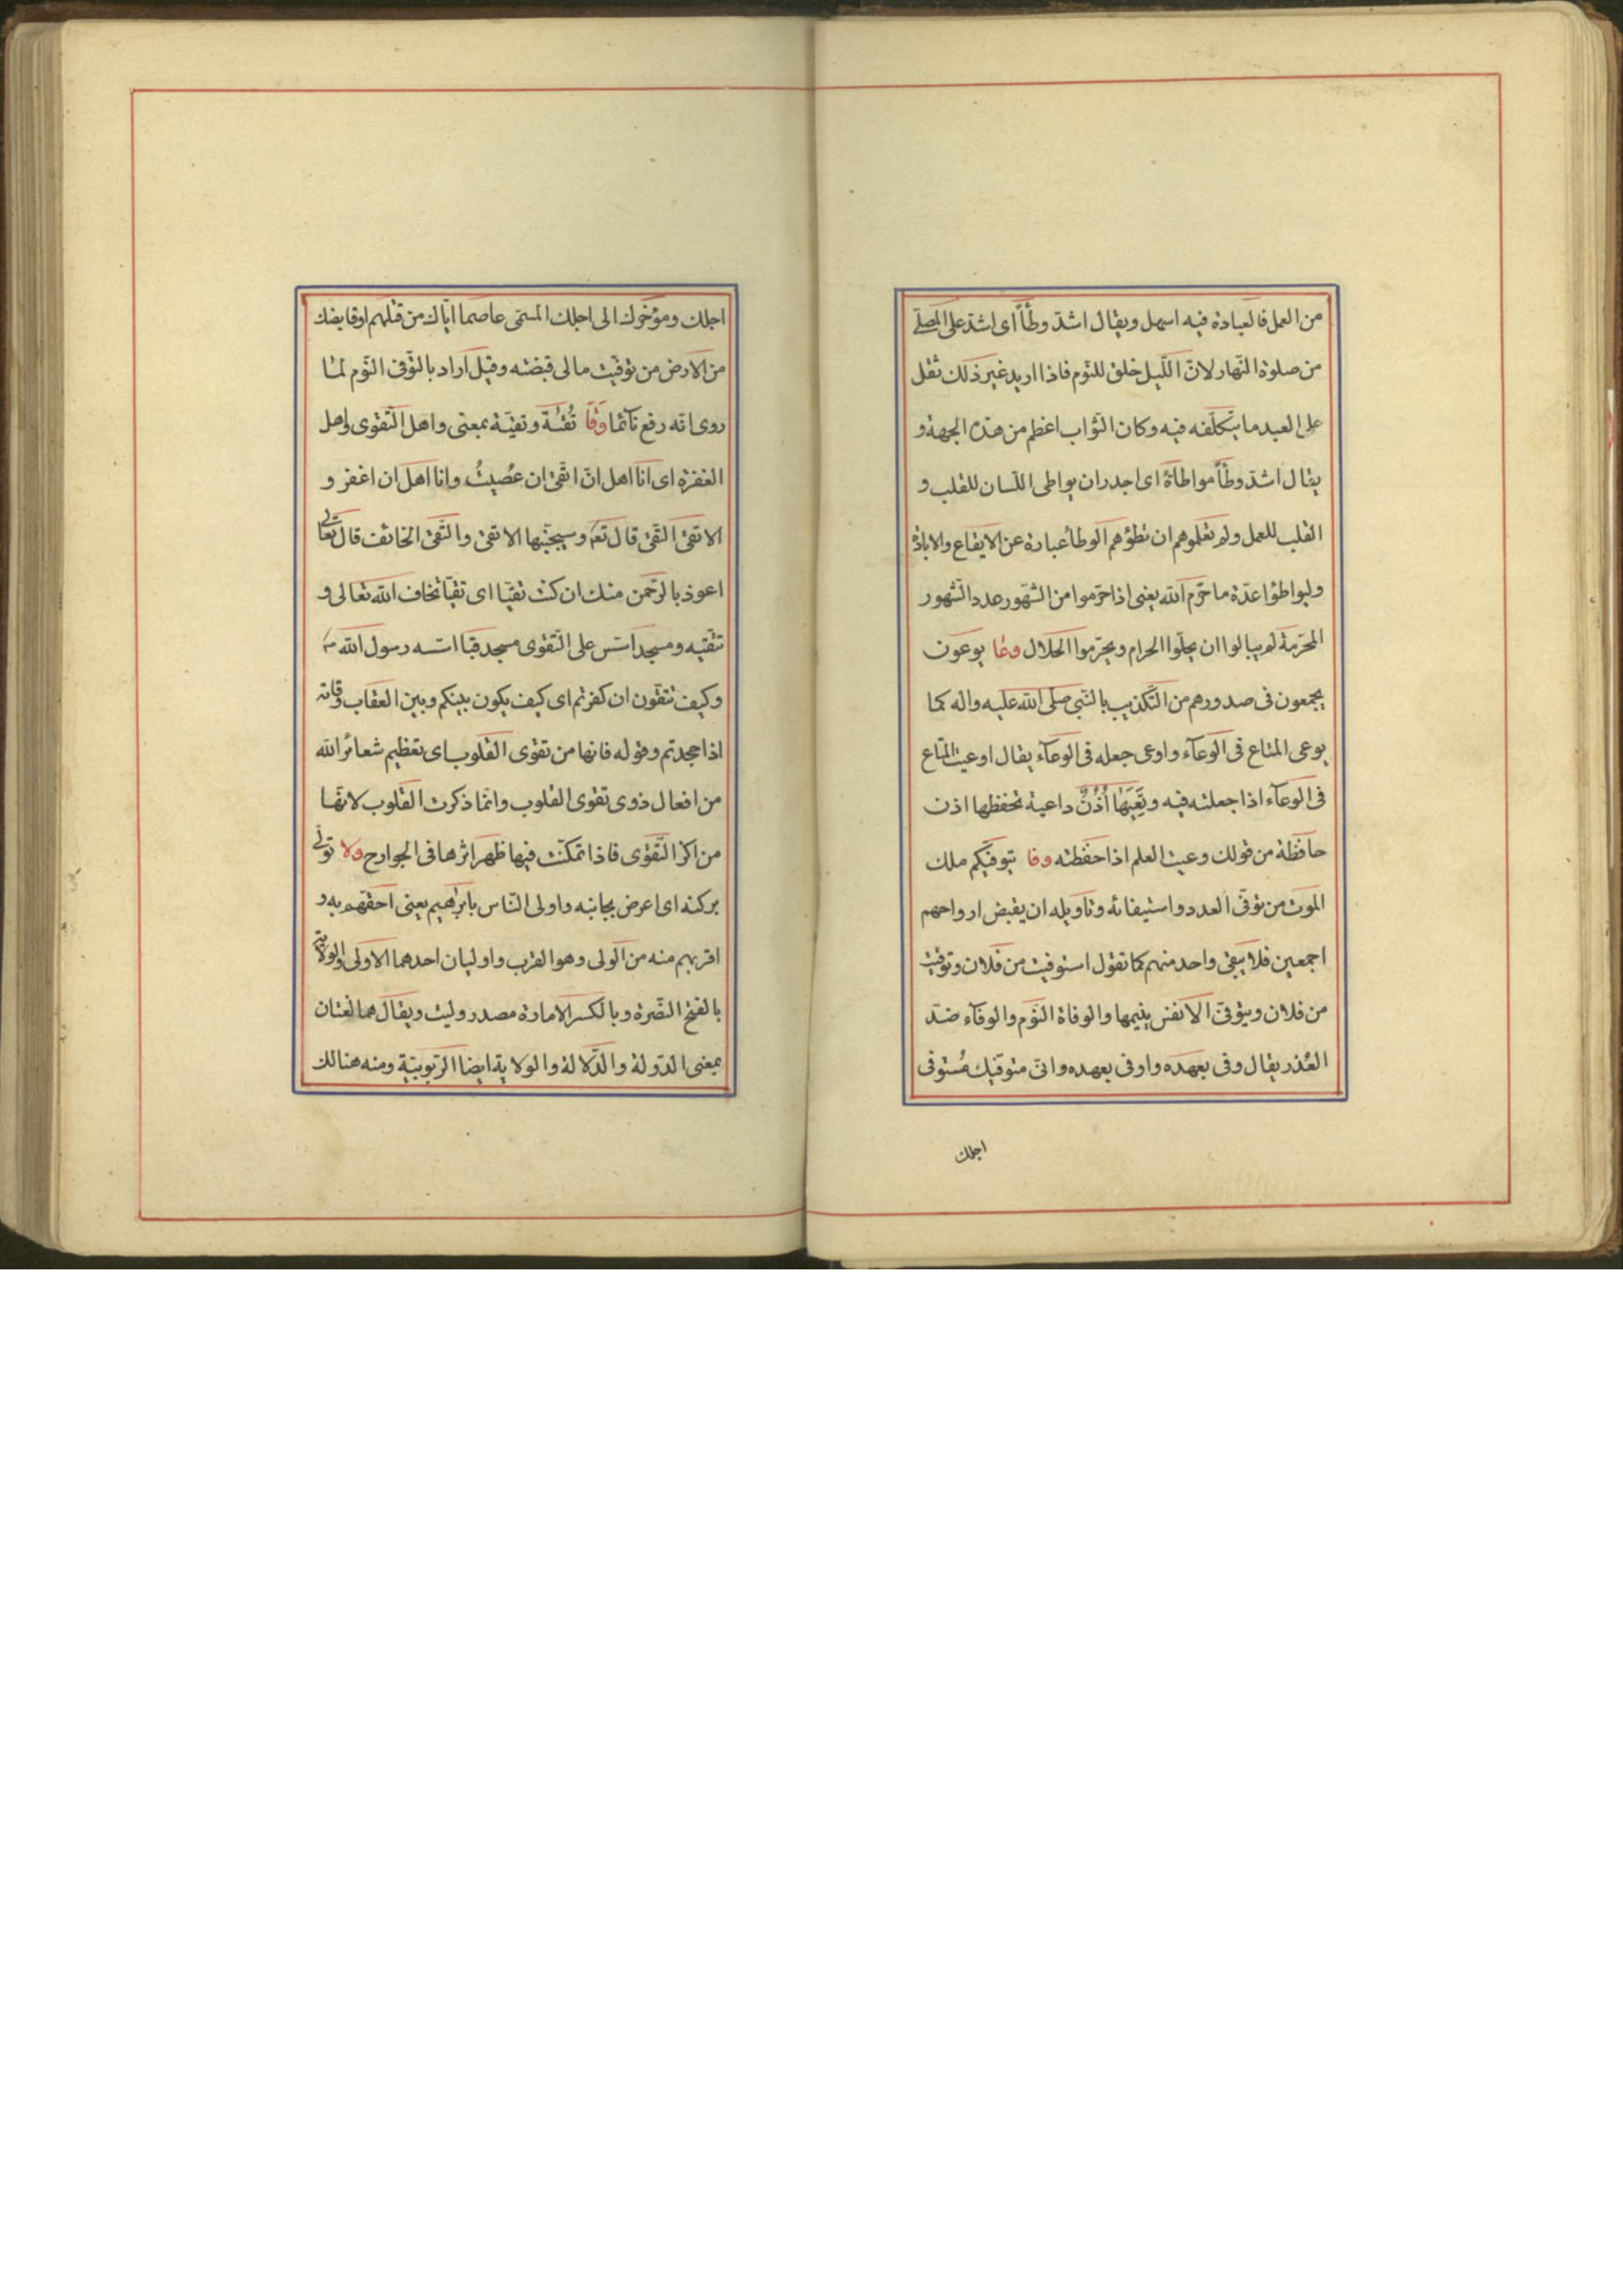 من العمل فالعبادة فيه اسهل ويقال اشدّ وطأً اى اشدّ على المصلّى
من صلوة النّهار لانّ اللّيل خلق للنّوم فاذا اريد غير ذلك ثقل
على العبد ما يتكلّفه فيه وكان الثّواب اعظم من هذه الجهة و
يقال اشدّ وطأً مواطاةً اى اجدر ان يواطى اللّسان للقلب و
القلب للعمل ولم تعلموهم ان تطؤهم الوطأ عبارة عن الايقاع والابادة
وليواطؤا عدّة ما حرّم الله يعنى اذا حرّموا من الشّهور عدد الشّهور
المحرّمة لم يبالوا ان يحلّوا الحرام ويحرّموا الحلال وعا يوعون
يجمعون فى صدورهم من التّكذيب بالنّبى صلّى الله عليه واله كما
يوعى المتاع فى الوعآء واوعى جعله فى الوعآء يقال اوعيت المتاع
فى الوعآء اذا جعلته فيه وتَعِيَهٰا اُذُنٌ داعية تحفظها اذن
حافظة من قولك وعيت العلم اذا حفظته وفا يتوفّيكم ملك
الموت من توفّى العدد واستيفائه وتاويله ان يقبض ارواحهم
اجمعين فلا يبقى واحد منهم كما تقول استوفيت من فلان وتوفّيت
من فلان ويتوفّى الانفس ينيمها والوفاة النّوم والوفآء ضدّ
الغدر يقال وفى بعهده واوفى بعهده وانّى متوفّيك مُستوفى
اجلك
اجلك ومؤخّرك الى اجلك المسمّى عاصما ايّاك من قتلهم او قابضك
من الارض من توفّيت مالى قبضته وقيل اراد بالتّوفى النّوم لمّا
روى انّه رفع نآئما وقا تُقٰىة وتقيّة بمعنى واهل التّقوى واهل
المغفرة اى انا اهل ان اتّقى ان عُصيتُ وانا اهل ان اغفر و
الاتقى التّقى قال تعٰ وسيجنّبها الاتقى والتّقى الخائف قال تعالى
اعوذ بالرّحمن منك ان كنت تقيّا اى تقيّا تخاف الله تعالى و
تتّقيه ومسجد اسّس على التّقوى مسجد قبا اسّسه رسول الله ص
وكيف تتّقون ان كفرتم اى كيف يكون بينكم وبين العقاب وقاية
اذا جحدتم وقوله فانها من تقوى القلوب اى تعظيم شعائر الله
من افعال ذوى تقوى القلوب وانّما ذكرت القلوب لانّها
مراكز التّقوى فاذا تمكّنت فيها ظهر اثرها فى الجوارح ولا تولّى
بركنه اى اعرض بجانبه واولى النّاس بابرٰهيم يعنى احقّهم به و
اقربهم منه من الولى وهو القرب واوليان احدهما الاولى والولاية
بالفتح النّصرة وبالكسر الامارة مصدر وليت ويقال هما لغتان
بمعنى الدّولة والدّلالة والولاية ايضا الرّبوبيّة ومنه هنالك